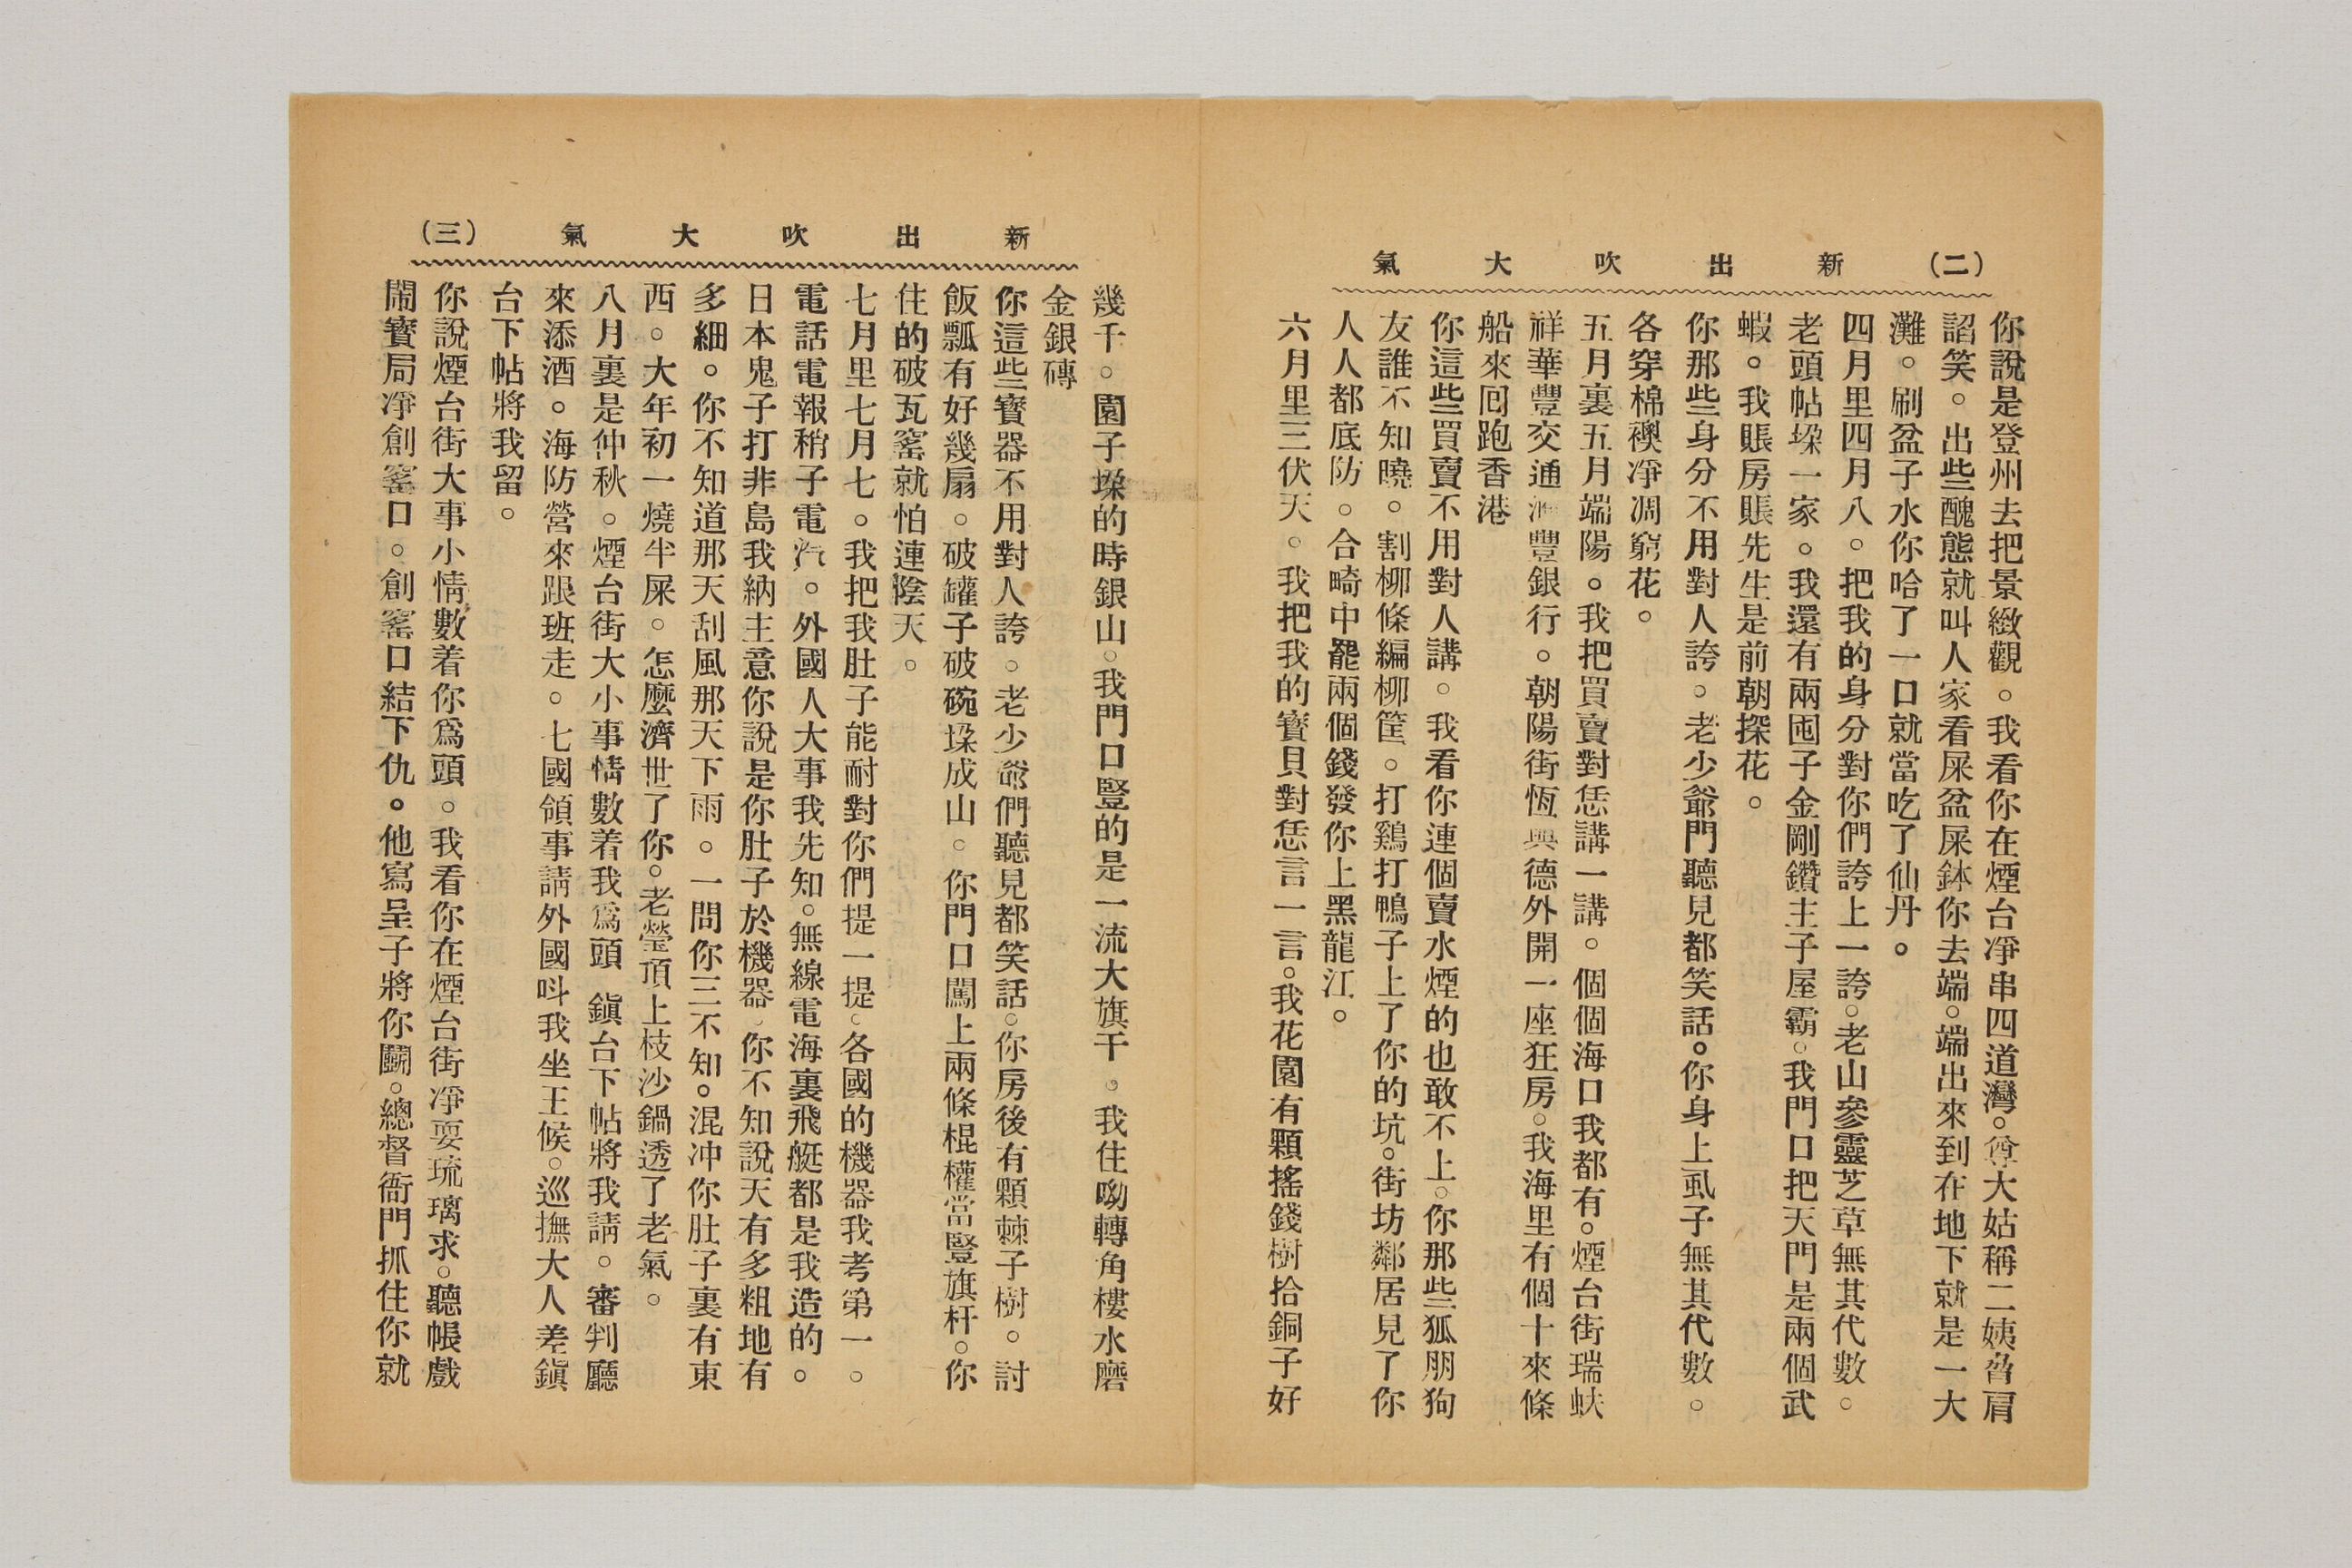 (二) 新出吹大氣
你說是登州去把景緻觀。我看你在煙台凈串四道灣。尊大姑稱二姨脅肩
諂笑。出些醜態就叫人家看屎盆屎鉢你去端。端出來到在地下就是一大
灘。刷盆子水你哈了一口就當吃了仙丹。
四月里四月八。把我的身分對你們誇上一誇。老山參靈芝草無其代數。
老頭帖垛一家。我還有兩囤子金剛鑽主子屋霸。我門口把天門是兩個武
蝦。我賬房賬先生是前朝探花。
你那些身分不用對人誇。老少爺門聽見都笑話。你身上虱子無其代數。
各穿棉襖凈凋窮花。
五月裏五月端陽。我把買賣對恁講一講。個個海口我都有。煙台街瑞蚨
祥華豐交通滙豐銀行。朝陽街恆興德外開一座狂房。我海里有個十來條
船來囘跑香港
你這些買賣不用對人講。我看你連個賣水煙的也敢不上。你那些狐朋狗
友誰不知曉。割柳條編柳筐。打鷄打鴨子上了你的坑。街坊鄰居見了你
人人都底防。合畸中罷兩個錢發你上黑龍江。
六月里三伏天。我把我的寳貝對恁言一言。我花園有顆搖錢樹拾銅子好
新出吹大氣 (三)
幾千。園子垜的時銀山。我門口豎的是一流大旗干。我住呦轉角樓水磨
金銀磚
你這些寳器不用對人誇。老少爺們聽見都笑話。你房後有顆棘子樹。討
飯瓢有好幾扇。破罐子破碗垜成山。你門口闖上兩條棍權當豎旗杆。你
住的破瓦窰就怕連陰天。
七月里七月七。我把我肚子能耐對你們提一提。各國的機器我考第一。
電話電報稍子電汽。外國人大事我先知。無線電海裏飛艇都是我造的。
日本鬼子打非島我納主意你說是你肚子於機器。你不知說天有多粗地有
多細。你不知道那天刮風那天下雨。一問你三不知。混冲你肚子裏有東
西。大年初一燒半屎。怎麼濟世了你。老瑩頂上枝沙鍋透了老氣。
八月裏是仲秋。煙台街大小事情數着我爲頭 鎭台下帖將我請。審判廳
來添酒。海防營來跟班走。七國領事請外國呌我坐王候。巡撫大人差鎭
台下帖將我留。
你說煙台街大事小情數着你爲頭。我看你在煙台街凈耍琉璃求。聽帳戲
鬧寳局凈創窰口。創窰口結下仇。他寫呈子將你鬭。總督衙門抓住你就